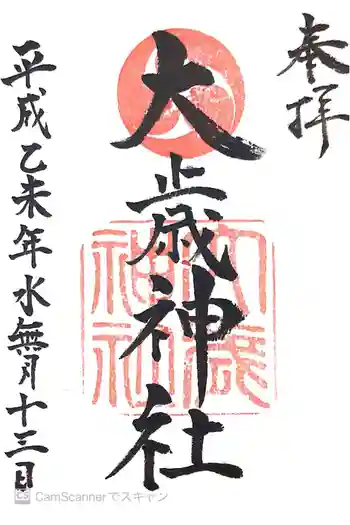 奉拝
大歳神社
大歳神社
平成乙未年水無月十三日
CS CamScannerでスキャン